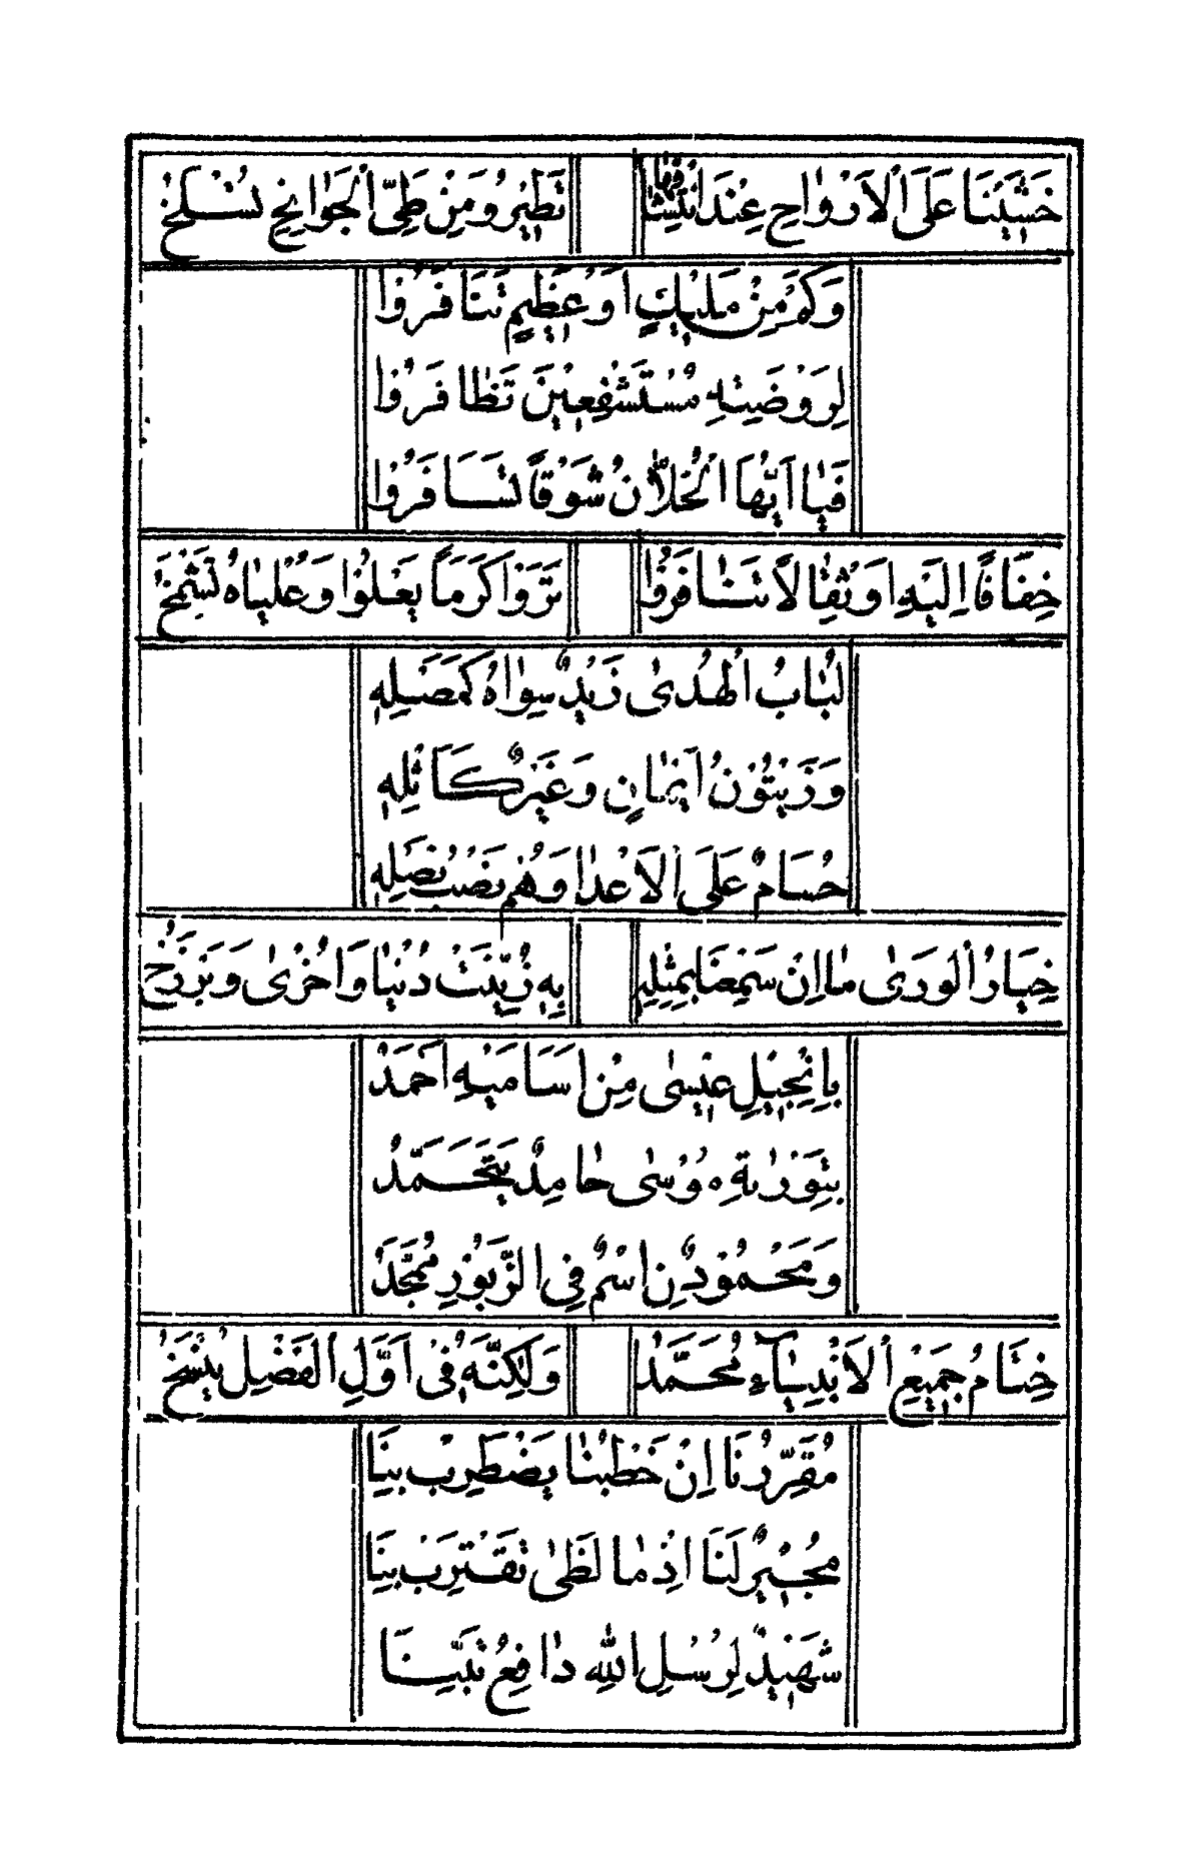 خَشِيْنَا عَلَى الْاَرْوَاحِ عِنْدَ انْتِشَاقِهَا تَطِيْرُ وَمِنْ طَيِّ الْجَوَانِحِ تُسْلَخُ
وَكَمْ مِنْ مَلِيْكٍ اَوْ عَظِيْمٍ تَنَافَرُوْا
لِرَوْضَتِهٖ مُسْتَشْفِعِيْنَ تَظَافَرُوْا
فَيَا اَيُّهَا الْخُلَّانُ شَوْقًا تَسَافَرُوْا
خِفَافًا اِلَيْهِ اَوْ ثِقَالًا تَنَافَرُوْا تَرَوْا كَرَمًا يَعْلُوْا وَعُلْيَاهُ تَشْمَخُ
لُبَابُ الْهُدٰى زُبْدٌ سِوَاهُ كَمَصْلِهٖ
وَزَيْتُوْنُ اِيْمَانٍ وَغَيْرٌ كَاَثْلِهٖ
حُسَامٌ عَلَى الْاَعْدَا وَهُمْ نَصْبُ نَصْلِهٖ
خِيَارُ الْوَرٰى مَا اِنْ سَمِعْنَا بِمِثْلِهٖ بِهٖ زُيِّنَتْ دُنْيَا وَاُخْرٰى وَبَرْزَخُ
بِاِنْجِيْلِ عِيْسٰى مِنْ اَسَامِيْهِ اَحْمَدُ
بِتَوْرٰىةِ مُوْسٰى حَامِدٌ يَتَحَمَّدُ
وَمَحْمُوْدُنِ اسْمٌ فِى الزَّبُوْرِ مُمَجَّدُ
خِتَامُ جَمِيْعِ الْاَنْبِيَآءِ مُحَمَّدٌ وَلٰكِنَّهٗ فِىْ اَوَّلِ الْفَضْلِ يُنْسَخُ
مُقَرِّرُنَا اِنْ خَطْبُنَا يَضْطَرِبْ بِنَا
مُجِيْرٌ لَنَا اِذْ مَا لَظٰى تَقْتَرِبْ بِنَا
شَهِيْدٌ لِرُسُلِ اللهِ دَافِعُ